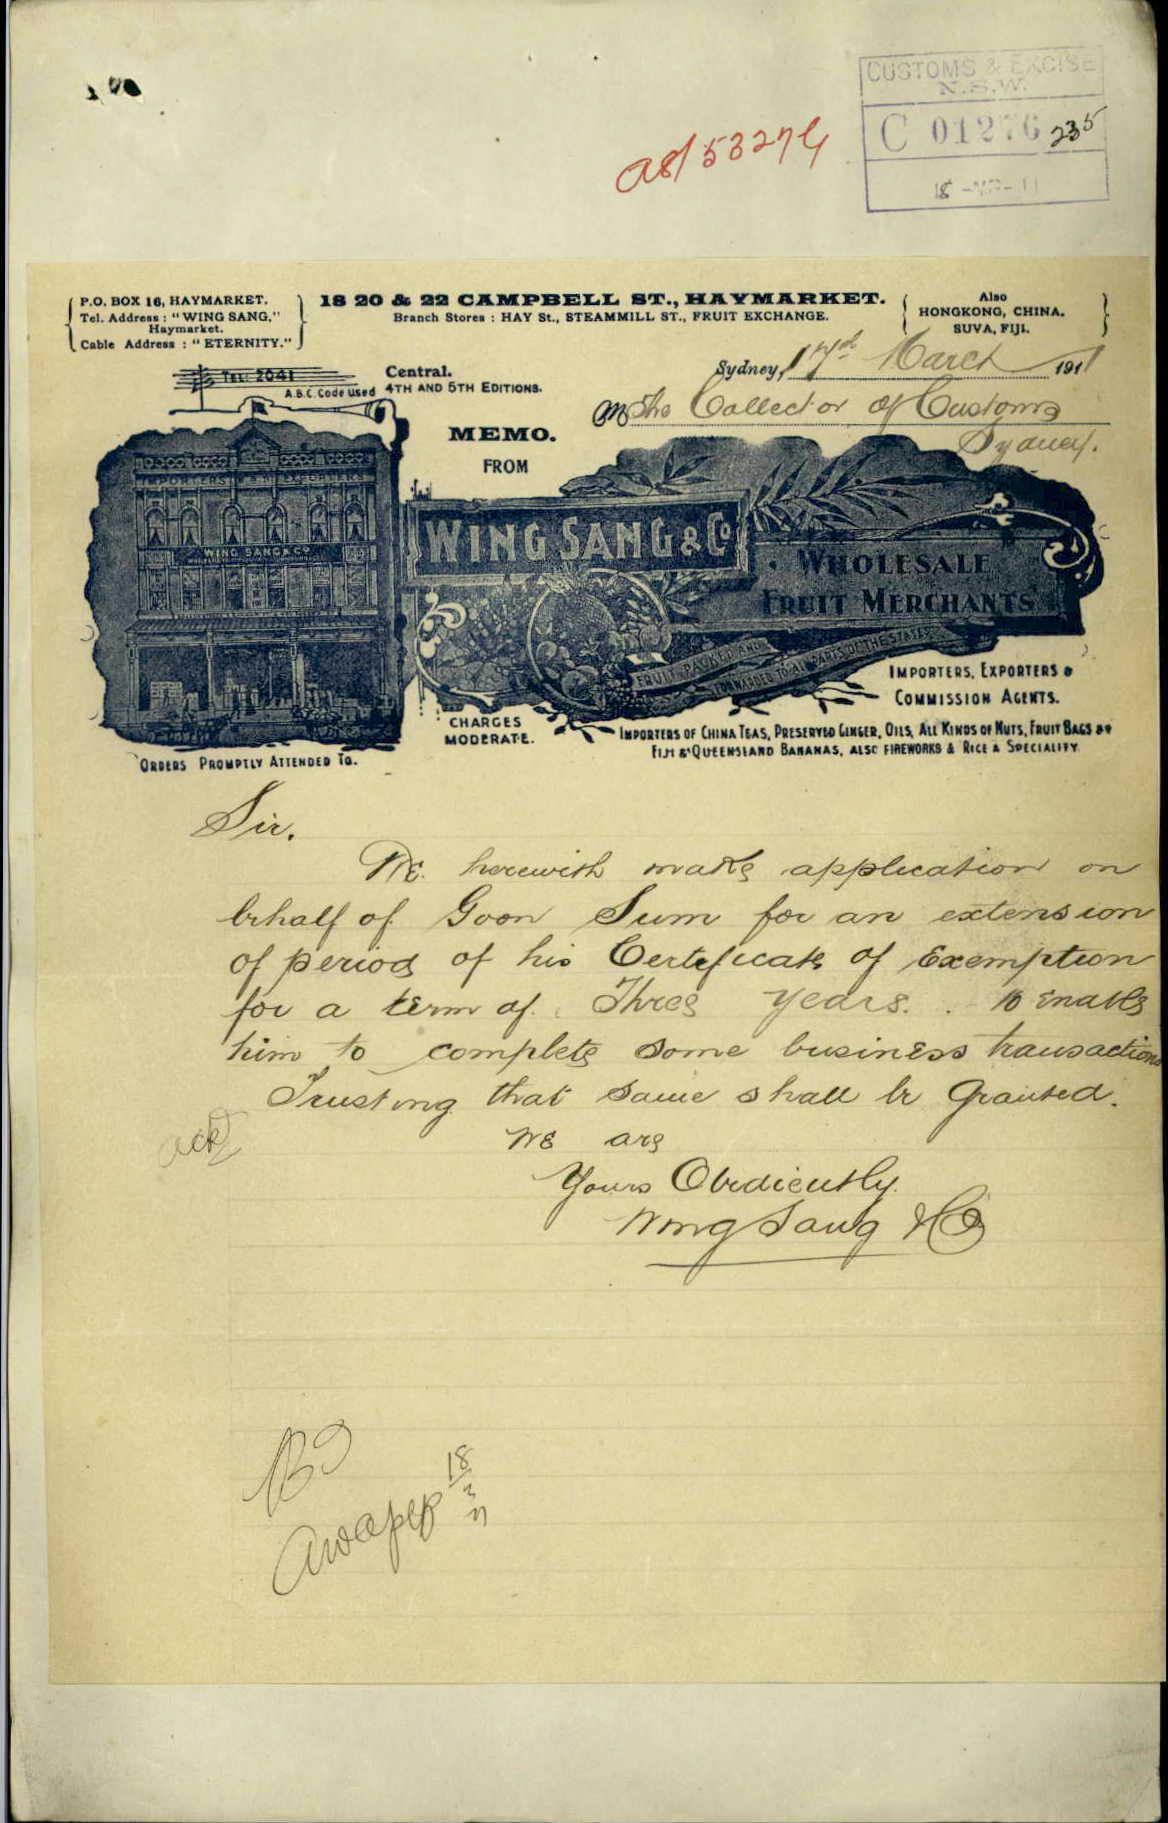 CUSTOMS & EXCISE
N.S.W.
C 01276 235
a8/53274
P.O. BOX 16, HAYMARKET.
Tel. Address : "WING SANG,"
Haymarket.
Cable Address : "ETERNITY."
18 20 & 22 CAMPBELL ST., HAYMARKET.
Branch Stores : HAY St., STEAMMILL ST., FRUIT EXCHANGE.
Also
HONGKONG, CHINA.
SUVA, FIJI.
TEL: 2041 Central.
A.B.C. Code Used 4TH AND 5TH EDITIONS.
Sydney, 17th March 1911
M The Collector of Customs
Sydney.
MEMO.
FROM
IMPORTERS & EXPORTERS
WING SANG & CO
WING SANG & Co
WHOLESALE
FRUIT MERCHANTS
FRUIT PACKED AND
FORWARDED TO ALL PARTS OF THE STATES
IMPORTERS, EXPORTERS &
COMMISSION AGENTS.
CHARGES
MODERATE.
IMPORTERS OF CHINA TEAS, PRESERVED GINGER, OILS, ALL KINDS OF NUTS, FRUIT BAGS &c
FIJI & QUEENSLAND BANANAS, ALSO FIREWORKS & RICE A SPECIALITY
ORDERS PROMPTLY ATTENDED TO.
Sir.
We herewith make application on
behalf of Goon Sum for an extension
of period of his Certificate of Exemption
for a term of Three years. to enable
him to complete some business transactions
Trusting that same shall be Granted.
ack
We are
Yours Obediently.
Wing Sang & Co
18
3
11